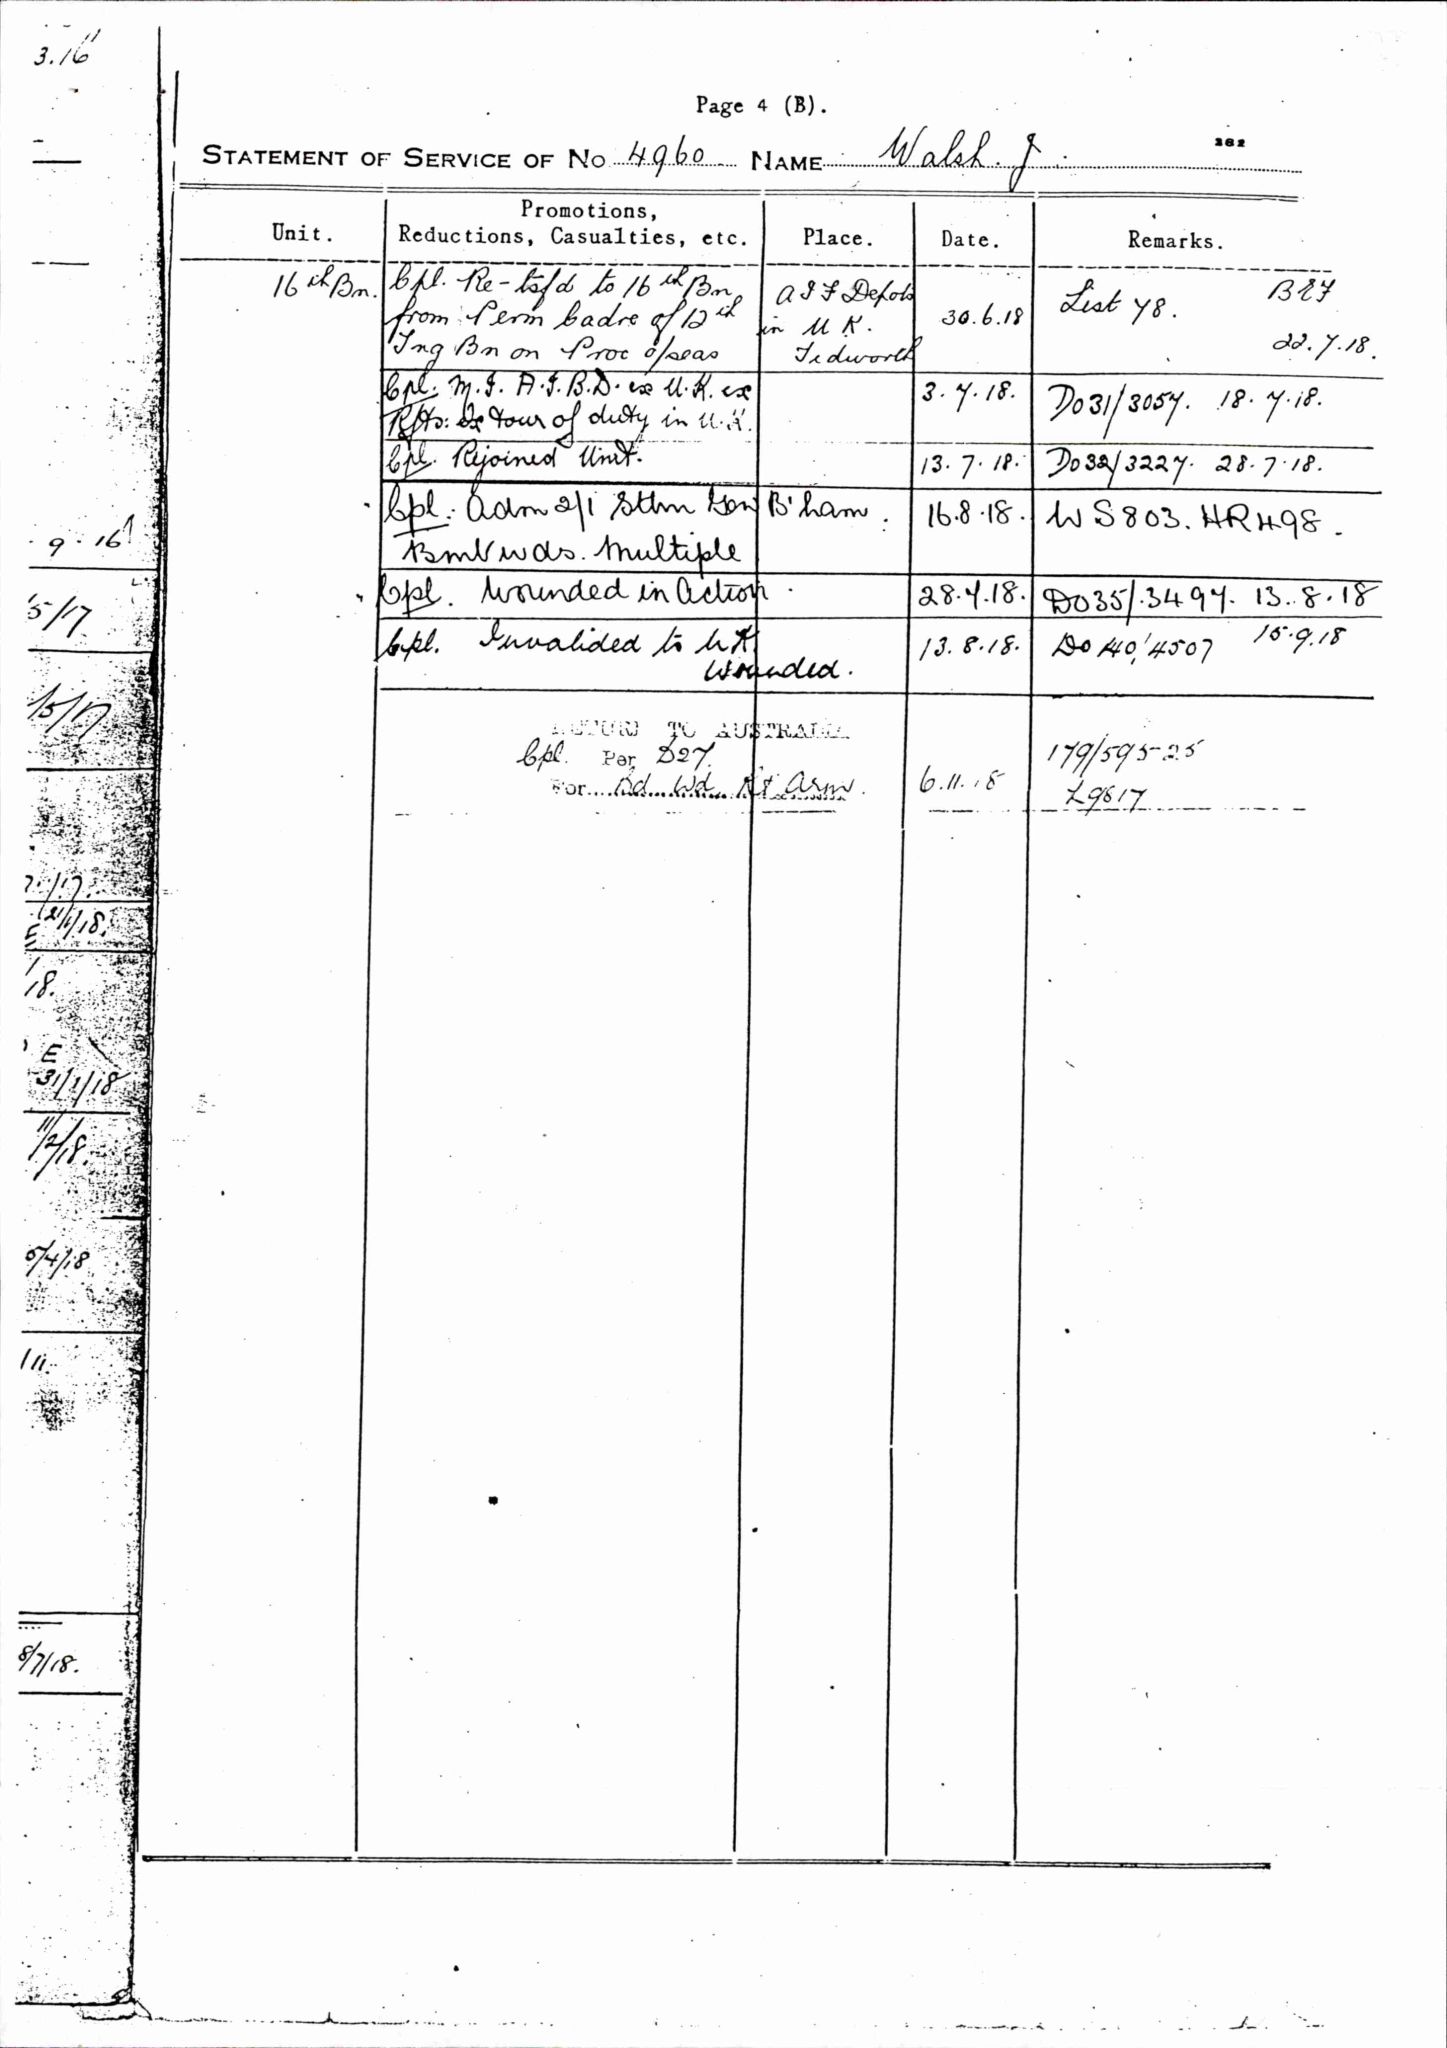 3.16
Page 4 (B).
282
STATEMENT OF SERVICE OF NO 4960 NAME Walsh. J.
Unit. Promotions, Reductions, Casualties, etc. Place. Date. Remarks.
16th Bn. Cpl. Re-tsfd to 16th Bn A I F Depots 30.6.18 List 78. BEF
from Perm Cadre of 12th in U K.
Tng Bn on Proc o/seas Tidworth 22.7.18.
Cpl. M.I. A.I.B.D. ex U.K. ex 3.7.18. DO31/3057. 18.7.18.
Rfts: Ex tour of duty in U.K.
Cpl. Rejoined Unit. 13.7.18. DO32/3227. 28.7.18.
Cpl. Adm 2/1 Sthn Gen B'ham. 16.8.18. WS803. HR498.
wds. Multiple
9.16
Cpl. Wounded in Action. 28.7.18. DO35/.3497. 13.8.18
5/17
Cpl. Invalided to UK 13.8.18. DO 40/4507 15.9.18
Wounded.
/5/17
RETURN TO AUSTRALIA
Cpl. Per D27. 6.11.18 179/595-25
For Bd. Wd. Rt Arm. L9817
/17.
E 21/1/18.
18.
E
31/1/18
11/2/18.
5/4/18
8/7/18.